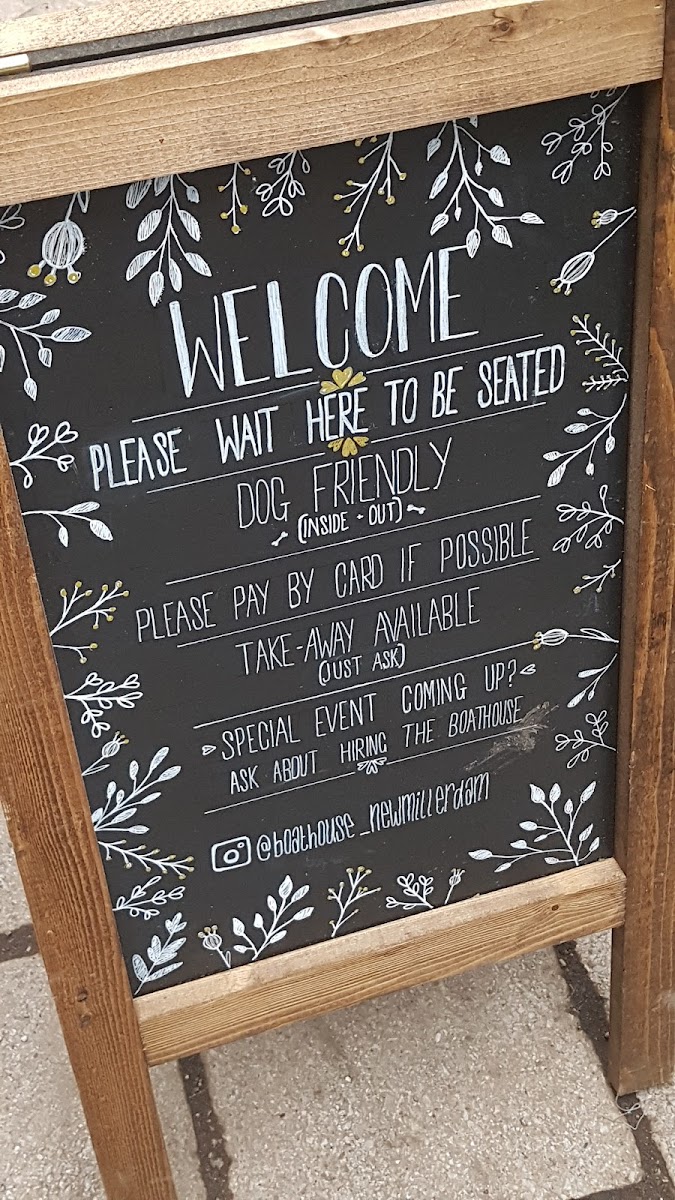 WELCOME
PLEASE WAIT HERE TO BE SEATED
DOG FRIENDLY
(INSIDE + OUT)
PLEASE PAY BY CARD IF POSSIBLE
TAKE-AWAY AVAILABLE
(JUST ASK)
SPECIAL EVENT COMING UP?
ASK ABOUT HIRING THE BOATHOUSE
@boathouse_newmillerdam